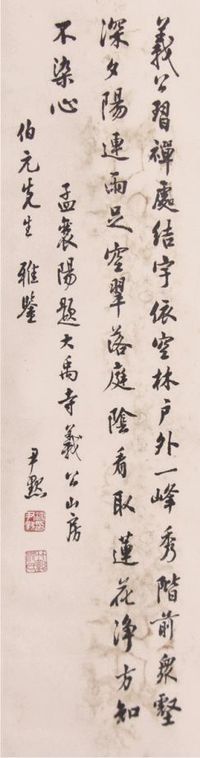 義公習禪處結宇依空林戶外一峰秀階前衆壑
深夕陽連雨足空翠落庭陰看取蓮花淨方知
不染心
孟襄陽題大禹寺義公山房
伯元先生 雅鑒
尹默